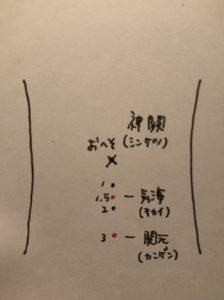 神闕
おへそ (シンゲツ)
×
1 •
1.5 • ー 気海
2 • (キカイ)
3 • ー 関元
(カンゲン)